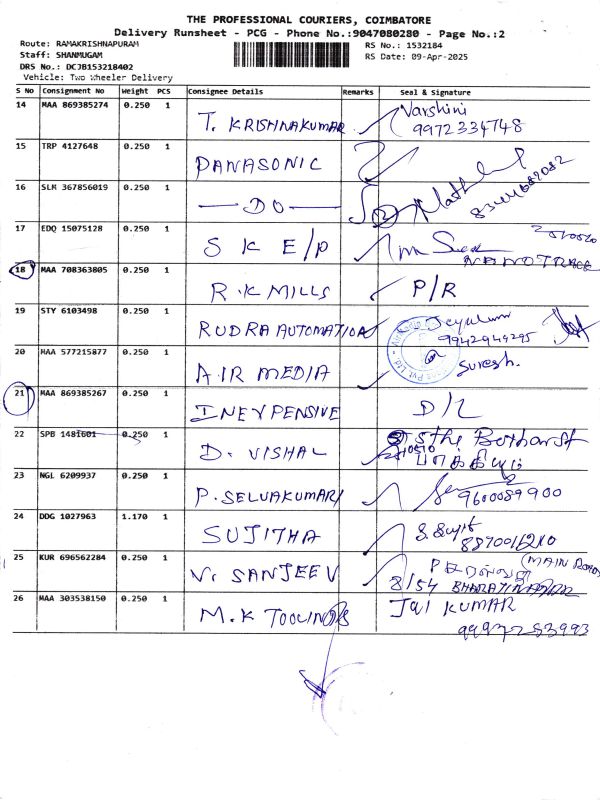 THE PROFESSIONAL COURIERS, COIMBATORE
Delivery Runsheet - PCG - Phone No.:9047080280 - Page No.:2
Route: RAMAKRISHNAPURAM
RS No.: 1532184
Staff: SHANMUGAM
RS Date: 09-Apr-2025
DRS No.: DCJB153218402
Vehicle: Two Wheeler Delivery
S No Consignment No Weight PCS Consignee Details Remarks Seal & Signature
14 MAA 869385274 0.250 1 T. KRISHNAKUMAR Varshini
9972334748
15 TRP 4127648 0.250 1 PANASONIC
16 SLM 367856019 0.250 1 —DO— 2
17 EDQ 15075128 0.250 1 S K E/P
NANOTRACE
18 MAA 708363805 0.250 1 R.K MILLS P/R
19 STY 6103498 0.250 1 RUDRA AUTOMATION Jeyakumar
9942949295
20 MAA 577215877 0.250 1 AIR MEDIA Suresh.
21 MAA 869385267 0.250 1 INEXPENSIVE D/L
22 SPB 1481601 0.250 1 D. VISHAL
23 NGL 6209937 0.250 1 P. SELVAKUMAR
9600089900
24 DDG 1027963 1.170 1 SUJITHA
25 KUR 696562284 0.250 1 V. SANJEEV (MAIN ROAD)
8/54 BHARATINAGAR
26 MAA 303538150 0.250 1 M.K TOOLINGS Jai KUMAR